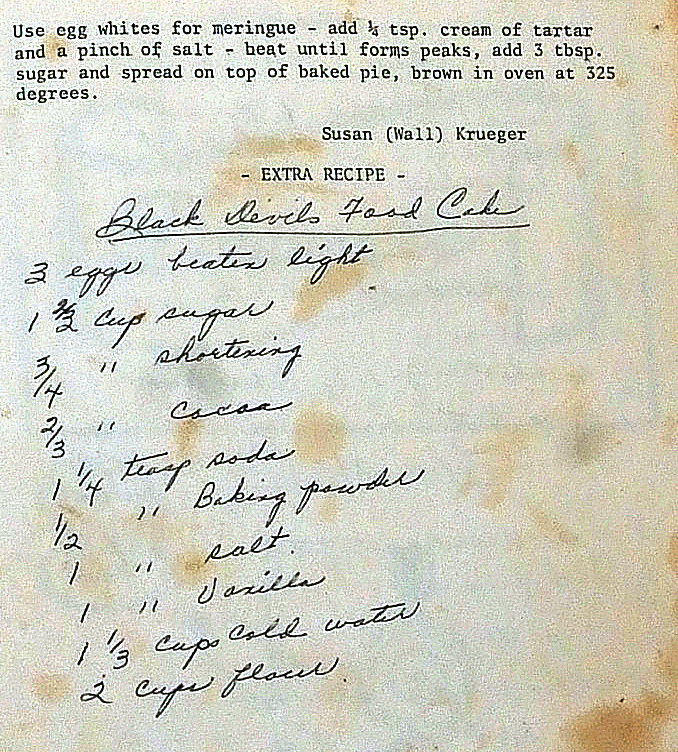 Use egg whites for meringue - add ¼ tsp. cream of tartar
and a pinch of salt - beat until forms peaks, add 3 tbsp.
sugar and spread on top of baked pie, brown in oven at 325
degrees.
Susan (Wall) Krueger
- EXTRA RECIPE -
Black Devils Food Cake
3 eggs beaten light
1 2/3 cup sugar
3/4 " shortening
2/3 " cocoa
1 1/4 teasp soda
1/2 " Baking powder
1 " salt.
1 " Vanilla
1 1/3 cups cold water
2 cups flour.